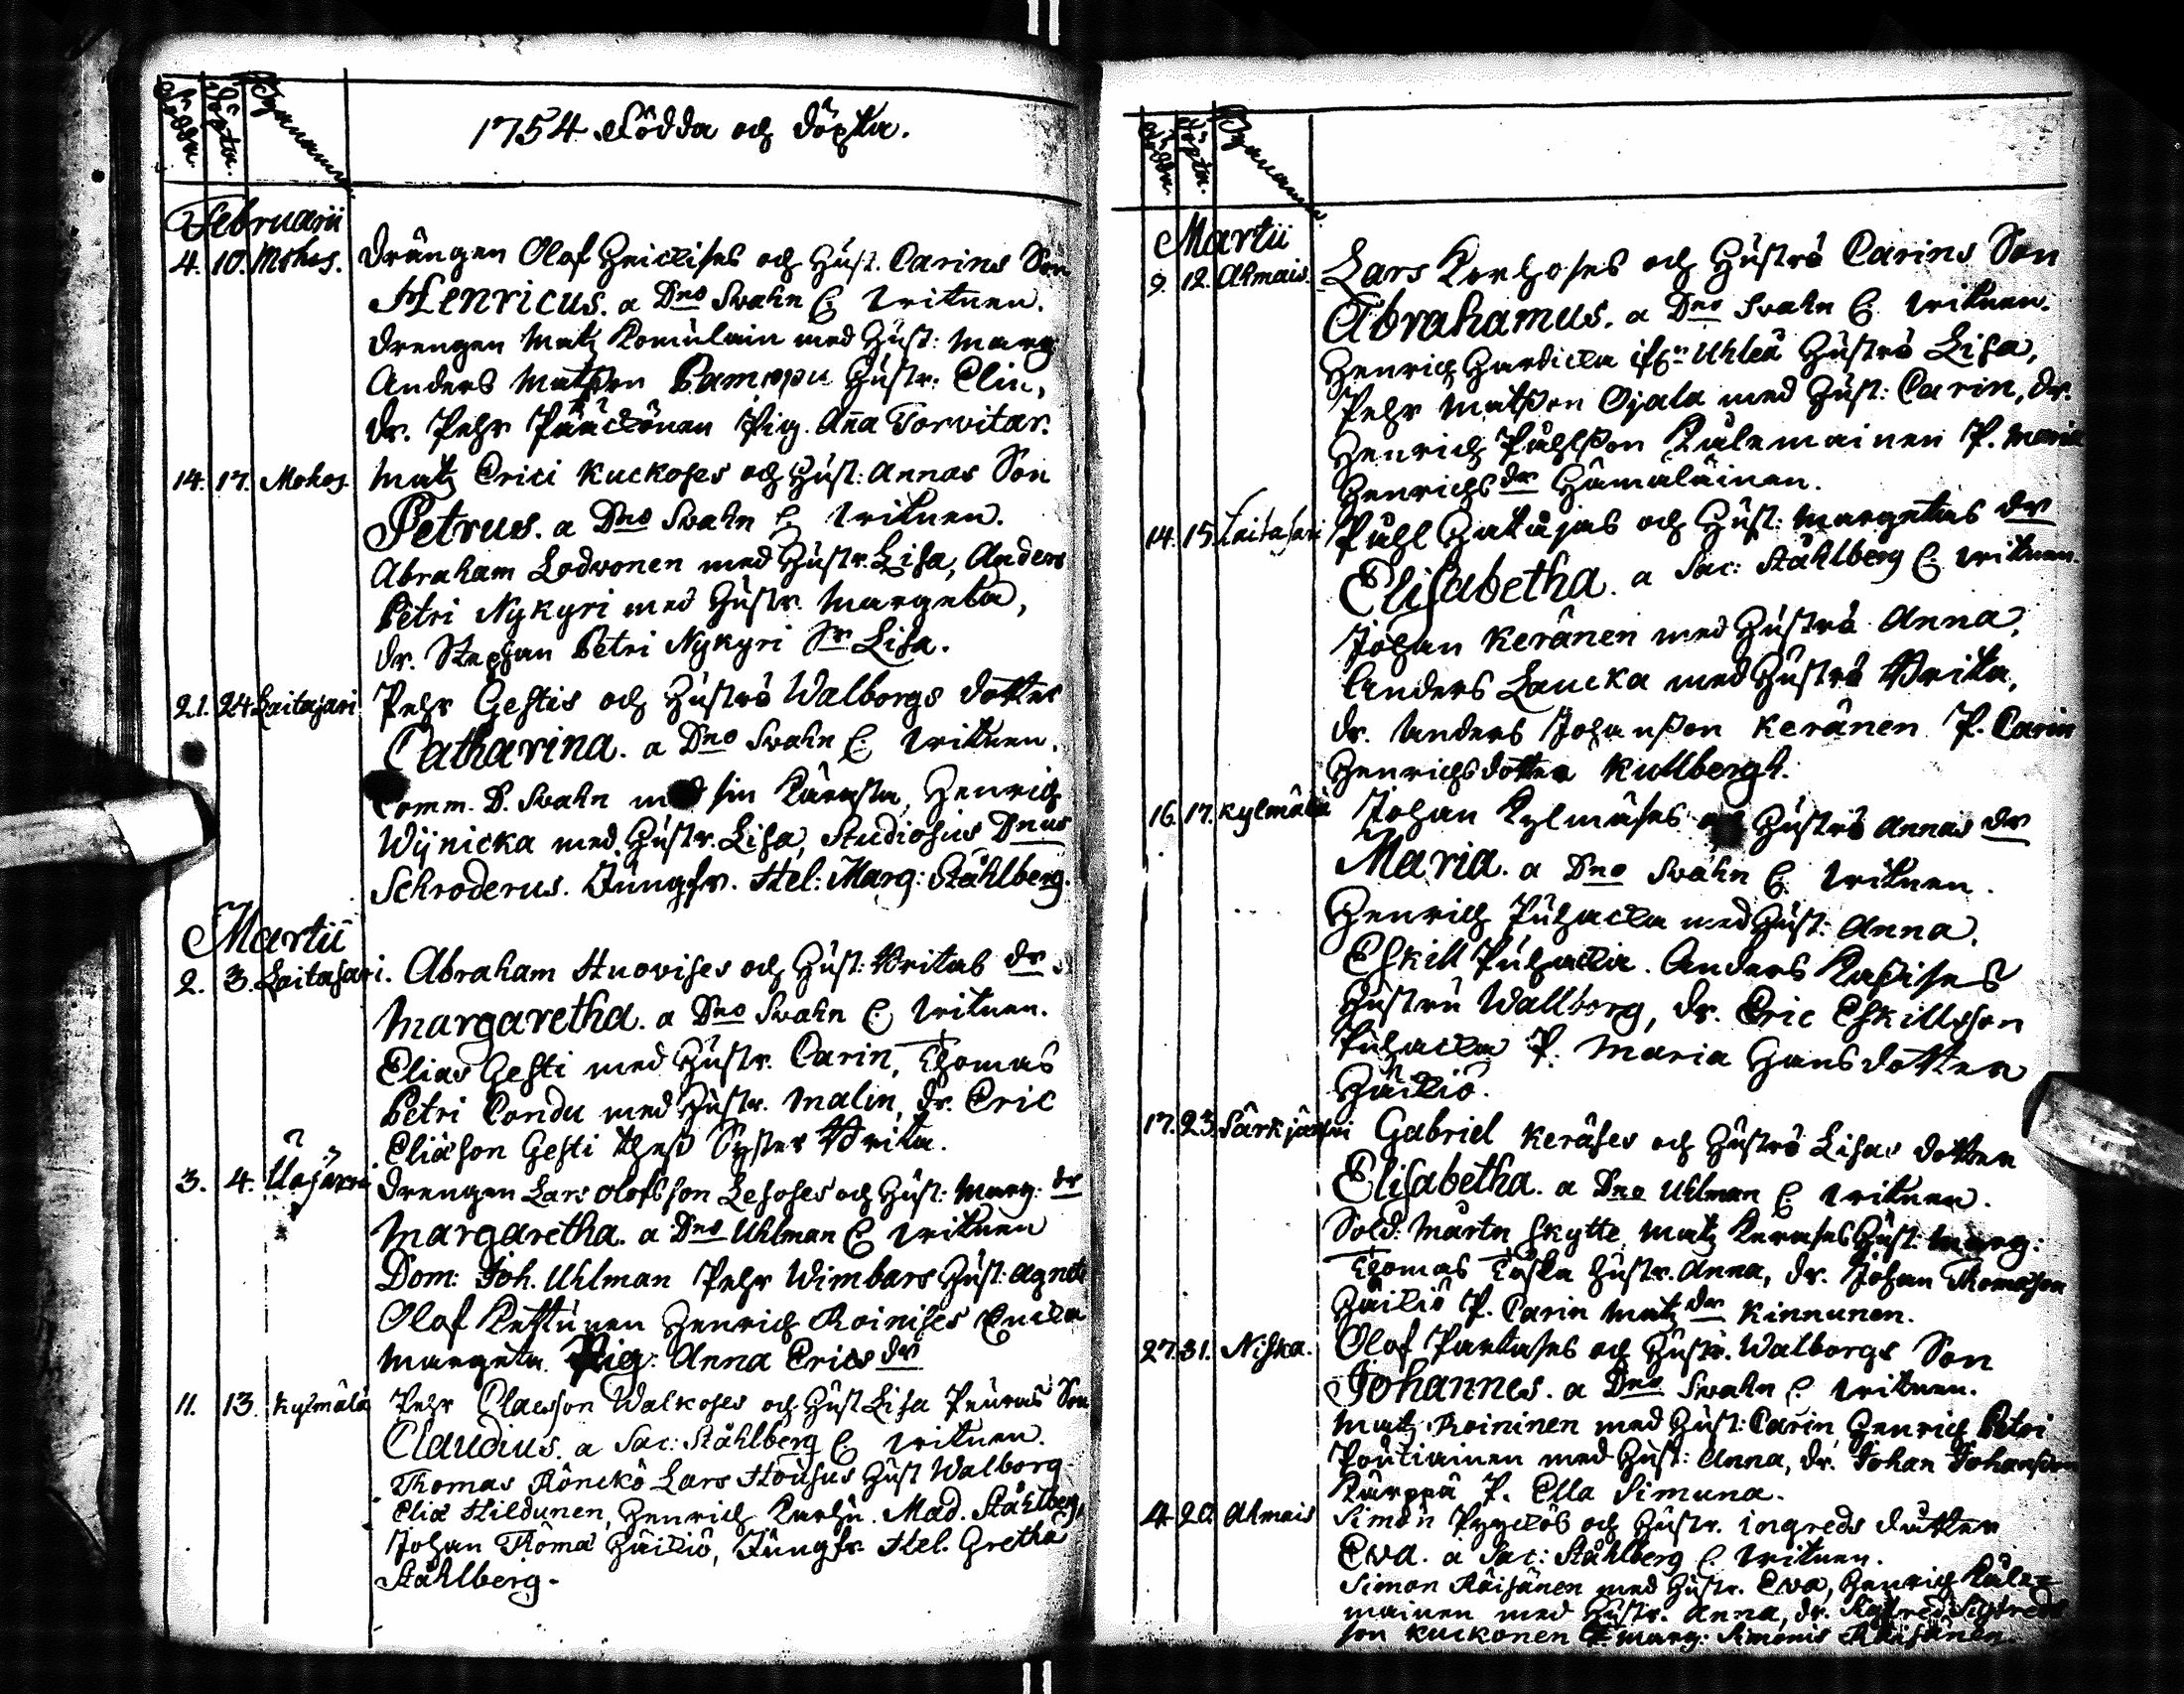 Födda.
Döpta.
Byanamn.
1754 Födda och döpta.
Februarii
4. 10. Mohos. Drängen Olof Heickises och Hust. Carins Son
Henricus. a Dno Svahn C. Vitnen.
Drengen Matz Komulain med Hust: Marg
Anders Matsson Pamppu Hustr: Elin,
dr. Pehr Pääckönen Pig. Anna Torvitar.
14. 17. Mohos Matz Erici Kuckoses och Hust: Annas Son
Petrus. a Dno Svahn C. Vitnen.
Abraham Lodvonen med Hustr. Lisa, Anders
Petri Nykyri med Hustr. Margeta,
dr. Stephan Petri Nykyri Sr Lisa.
21. 24 Laitasari Pehr Gestis och Hustrs Walborgs dotter
Catharina. a Dno Svahn C. Vitnen.
Comm. D. Svahn med sin Kärasta, Henrich
Wijnicka med Hustr. Lisa, Studiosus Dnus
Schroderus. Jungfr. Hel: Marg: Ståhlberg.
Martii
2. 3. Laitasari. Abraham Huovises och Hust: Britas dr
Margaretha. a Dno Svahn C. Vitnen.
Elias Gesti med Hustr. Carin, Thomas
Petri Pondu med Hustr. Malin, dr. Eric
Eliason Gesti Thess Syster Brita.
3. 4. Drengen Lars Olofsson Lesoses och Hust: Marg: dr
Margaretha. a Dno Uhlman C. Vitnen
Dom: Joh. Uhlman Pehr Wimbars Hust: Agneta
Olof Kettunen Henrich Roinises Encka
Margeta. Pig: Anna Erics dr
11. 13. Kylmälä Pehr Claesson Walkoses och Hust Lisa Peuras Son
Claudius. a Sac: Ståhlberg C. Vitnen.
Thomas Rönckö Lars Housus Hust Walborg
Elia Hildunen, Henrich Karhu. Mad. Ståhlberg,
Johan Thoma Häikiö, Jungfr. Hel. Gretha
Ståhlberg.
Födda.
Döpta.
Byanamn.
Martii
9. 12. Ahmais. Lars Korhoses och Hustrs Carins Son
Abrahamus. a Dno Svahn C. Vitnen.
Henrich Hardicka Uhleå Hustrs Lisa,
Pehr Matsson Ojala med Hust: Carin, dr.
Henrich Påhlsson Kulemainen P. Maria
Henrichs dr Hämäläinen.
14. 15. Laitasari Påhl Hatajas och Hust: Margetas dr
Elisabetha. a Sac: Ståhlberg C. Vitnen.
Johan Keränen med Hustrs Anna,
Anders Laucka med Hustrs Brita,
dr. Anders Johansson Keränen P. Carin
Henrichsdotter Kullbergh.
16. 17. Kylmälä Johan Kylmäses och Hustrs Annas dr
Maria. a Dno Svahn C. Vitnen.
Henrich Puhacka med Hust: Anna,
Eskill Puhacka. Anders Kassises
Hustru Wallborg, dr. Eric Eskillsson
Puhacka P. Maria Hansdotter
Häikiö.
17. 23. Särkijärvi Gabriel Keräses och Hustrs Lisas dotter
Elisabetha. a Dno Uhlman C. Vitnen.
Sold: Mårtn Skytte, Matz Keräses Hust: Marg:
Thomas Toska Hustr. Anna, dr. Johan Thomasson
Häikiö P. Carin Matz dr Kinnunen.
27. 31. Niska. Olof Partases och Hustr. Walborgs Son
Johannes. a Dno Svahn C. Vitnen.
Matz Roininen med Hust: Carin Henrich Petri
Poutiainen med Hust: Anna, dr. Johan Johansson
Kärppä P. Ella Simuna.
4. 20. Ahmais Simon Pyyckös och Hustr. Ingreds dotter
Eva. a Sac: Ståhlberg C. Vitnen.
Simon Räisänen med Hustr. Eva, Henrich Kule-
mainen med Hustr. Anna, dr. Sigfred Sigfreds
son Kuckonen P. Marg: Simonis Räisänen.